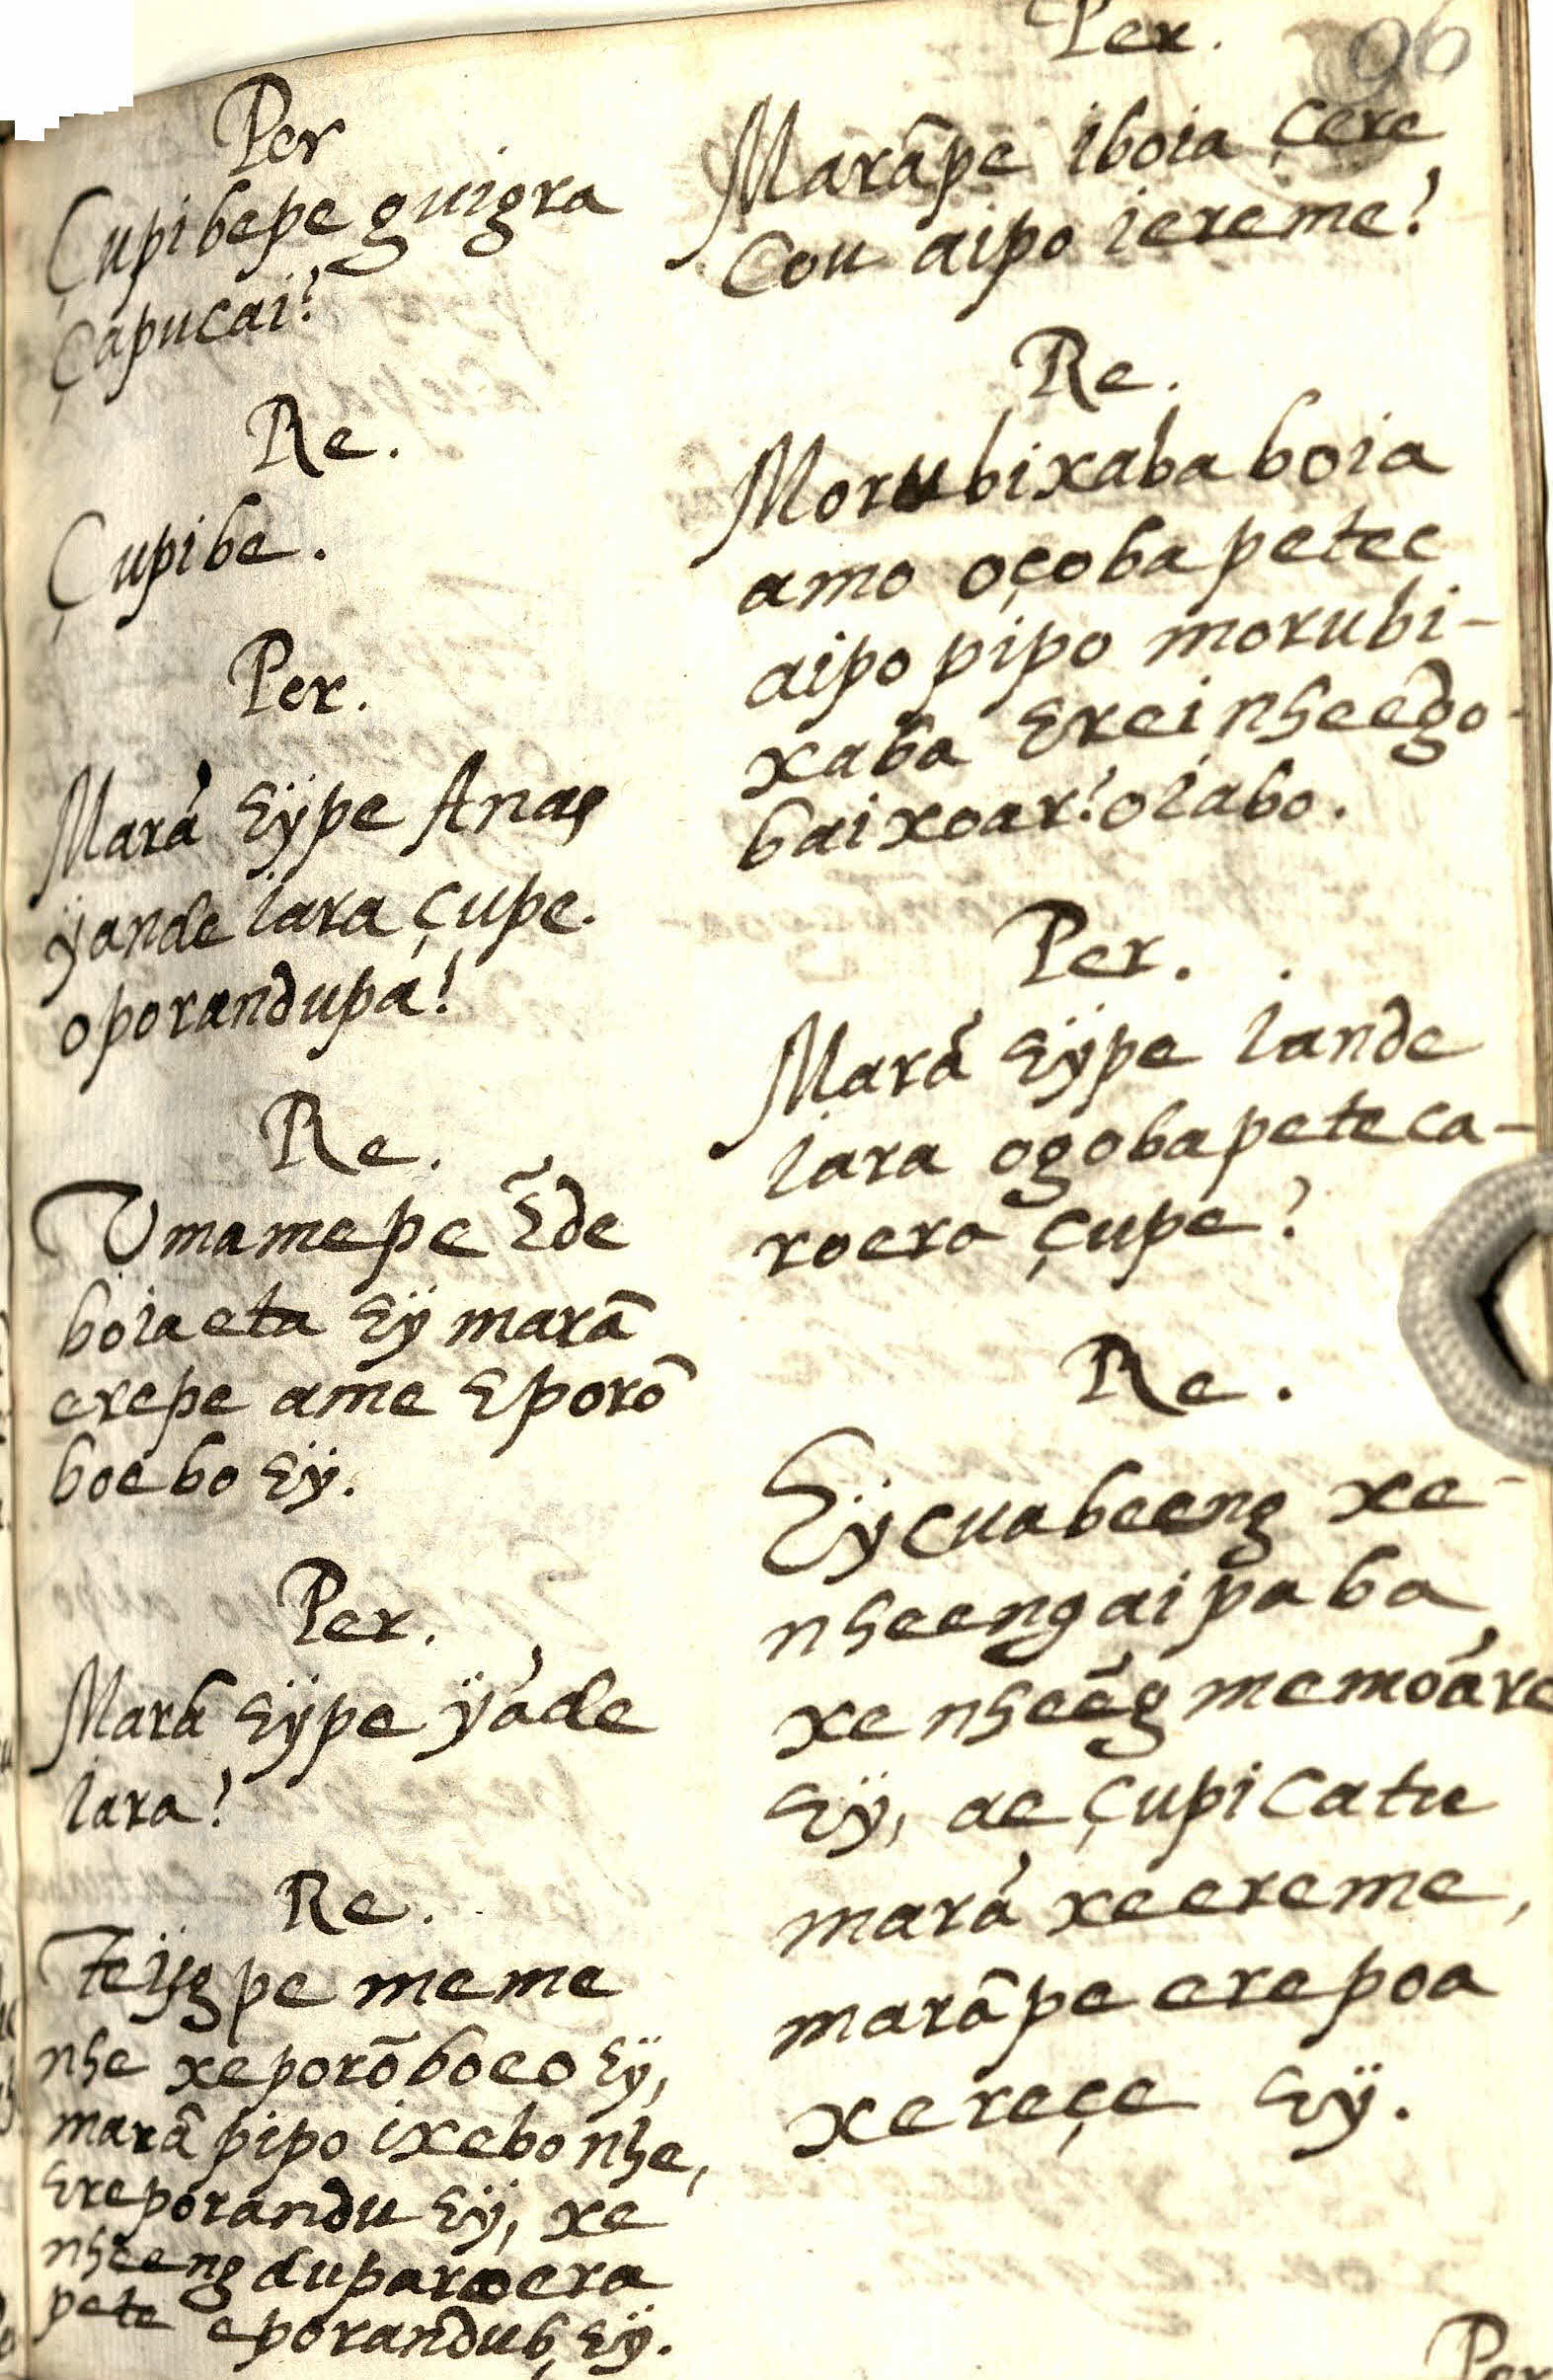 Per
Çupibepe guigra
çapucai?
Re.
Çupibe.
Per.
Marã Eÿpe Anas
ÿande iara çupe.
oporandupa?
Re.
Vmamepe Ẽde
boiaeta Eÿ marã
erepe ame Eporõ
boebo Eÿ.
Per.
Marã Eÿpe ÿãde
iara?
Re.
Teijgpe meme
nhe xeporõboeo Eÿ,
marã pipo ixebo nhe,
Ereporandu Eÿ, xe
nheeng duparoera
pete eporandub, Eÿ.
96
Per.
Marãpe iboia çere
Cou aipo iereme?
Re.
Morubixaba boia
amo oçobapetec
aipo pipo morubi-
xaba Ereinheẽgo-
baixoar? oiabo.
Per.
Marã Eÿpe iande
iara ogobapeteca-
roera çupe?
Re.
Eÿcuabeeng xe-
nheengaipaba
xe nheẽg memoãre
Eÿ, ae çupicatu
marã xeereme,
marãpe erepoa
xereçe Eÿ.
Per